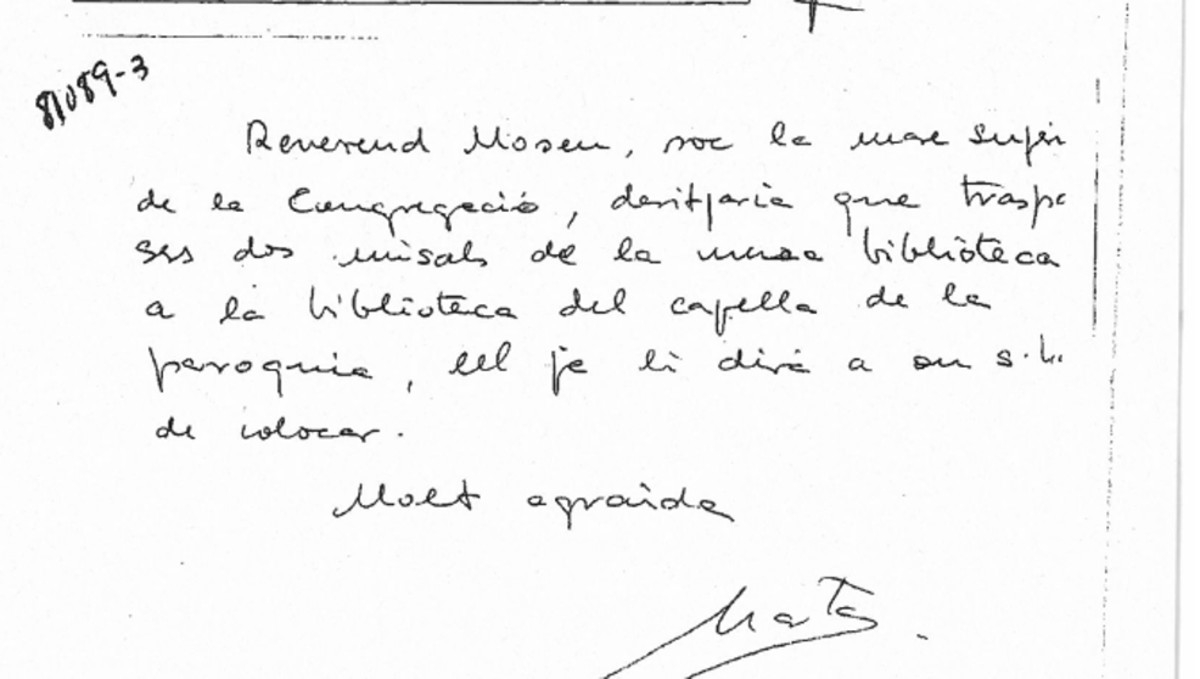 81089-3
Reverend Mosen, soc la mare super
de la Congregació, desitjaria que traspa
ses dos misals de la meva biblioteca
a la biblioteca del capella de la
paroquia, ell ja li dirà a on s'h
de colocar.
Molt agraida
Marta.